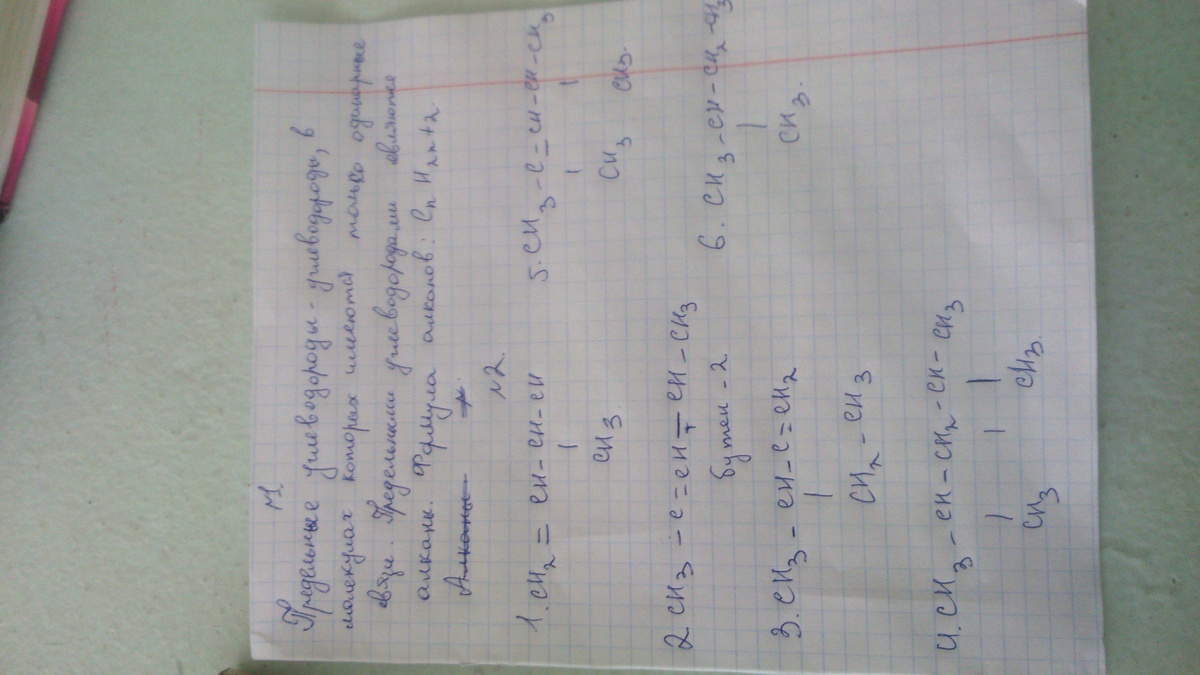 №1.
Предельные углеводороды - углеводороды, в
молекулах которых имеются только одинарные
связи. Предельными углеводородами являются
алканы. Формула алканов: CnH2n+2
Алканы
№2.
1. CH2 = CH - CH - CH
|
CH3
2. CH3 - C = CH = CH - CH3
бутен - 2
3. CH3 - CH - C = CH2
|
CH2 - CH3
4. CH3 - CH - CH2 - CH - CH3
| | |
CH3 CH3.
5. CH3 - C = CH - CH - CH3
| |
CH3 CH3.
6. CH3 - CH - CH2 - CH3
|
CH3.